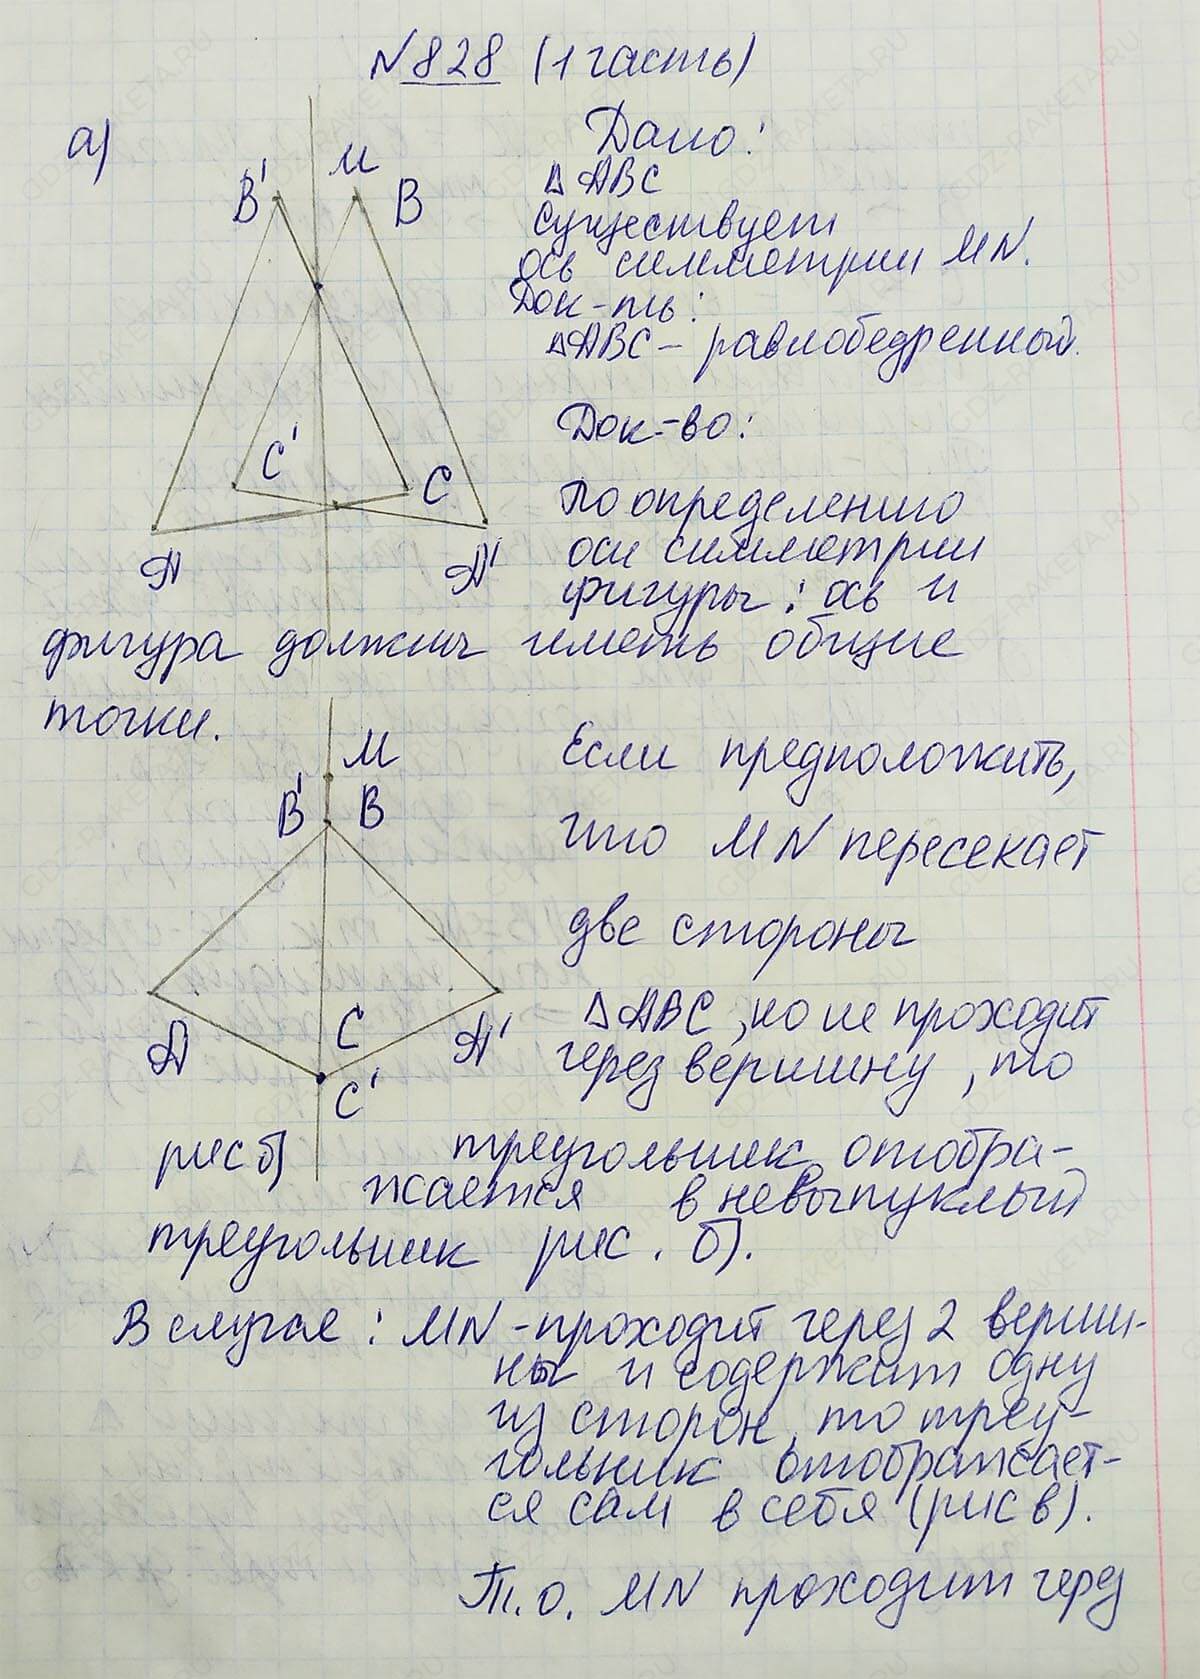 №828 (1 часть)
а)
Дано:
B'
M
B
△ABC
существует
ось симметрии MN.
Док-ть:
△ABC – равнобедренный.
Док-во:
C'
C
A
A'
По определению
оси симметрии
фигуры: ось и
фигура должны иметь общие
точки.
M
B'
B
Если предположить,
что MN пересекает
две стороны
C
A
A'
C'
△ABC, но не проходит
через вершину, то
рис б)
треугольник отобра-
жается в невыпуклый
треугольник рис. б).
В случае: MN - проходит через 2 верши-
ны и содержит одну
из сторон, то треу-
гольник отображает-
ся сам в себя (рис в).
Т.о. MN проходит через